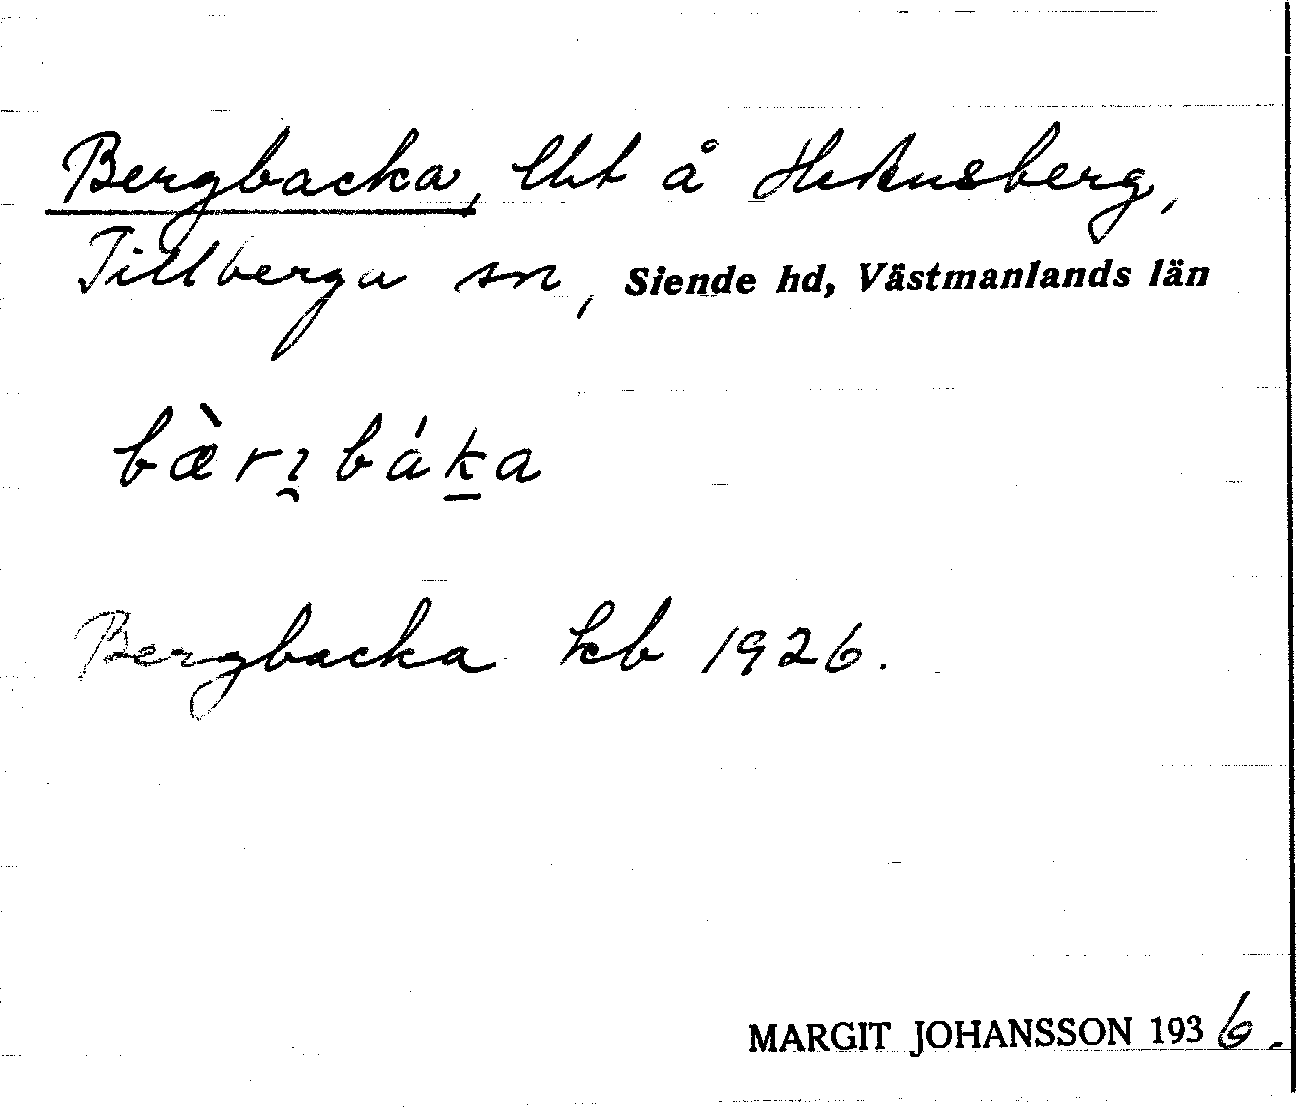 Bergbacka, lht å Hetnusberg,
Tillberga sn, Siende hd, Västmanlands län
bæ̀rı̯báḵa
Bergbacka kb 1926.
MARGIT JOHANSSON 1936.